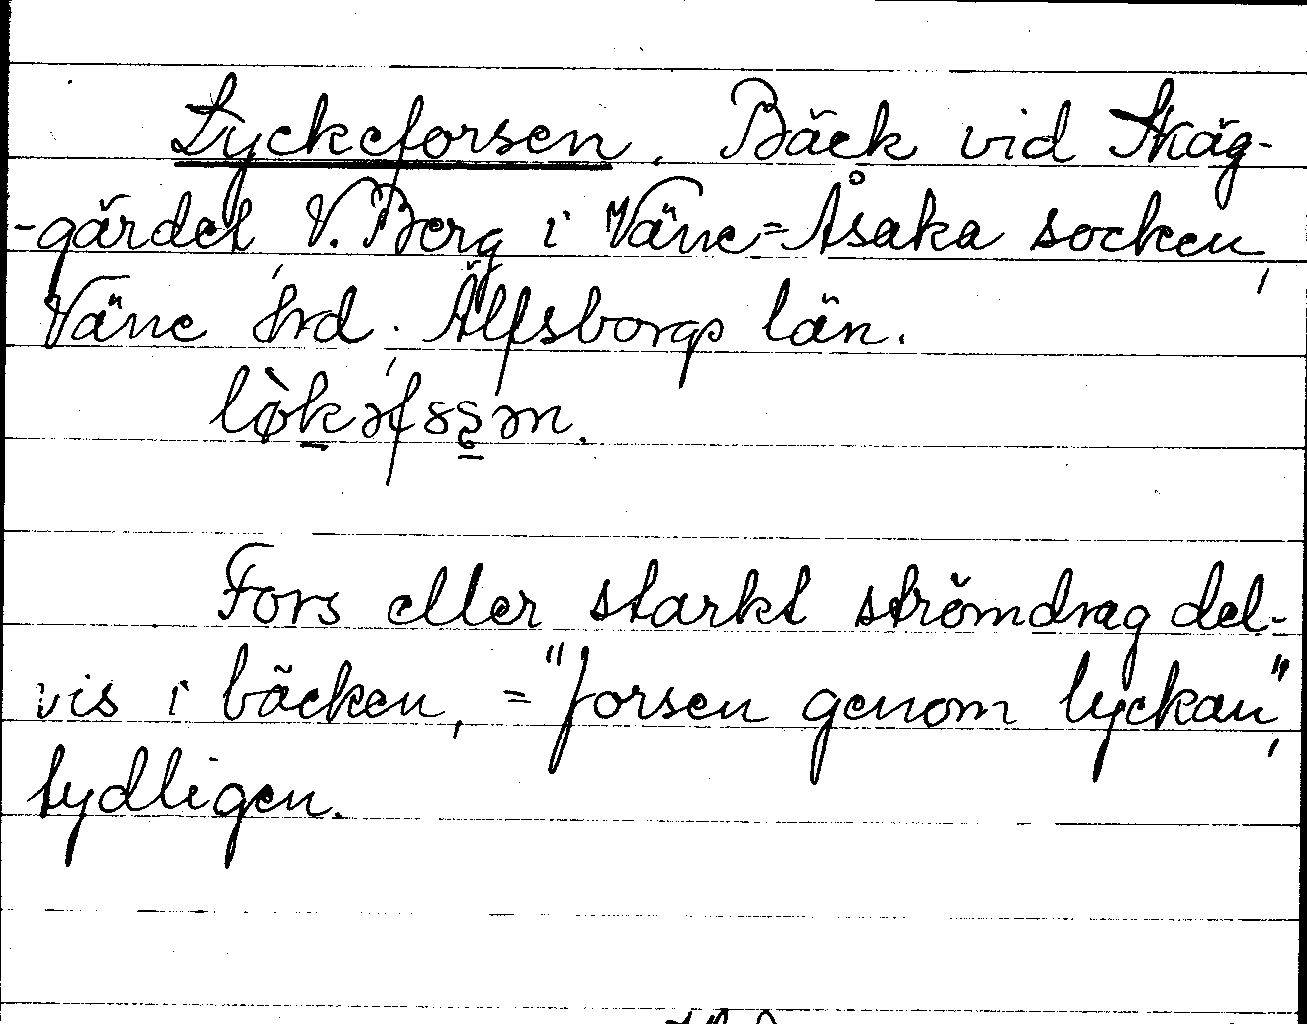 Lyckeforsen. Bäck vid Skäg-
-gärdet V. Berg i Väne-Åsaka socken,
Väne hrd; Älfsborgs län.
lø̀kəfsʂən.
Fors eller starkt strömdrag del-
vis i bäcken, = "forsen genom lyckan",
tydligen.